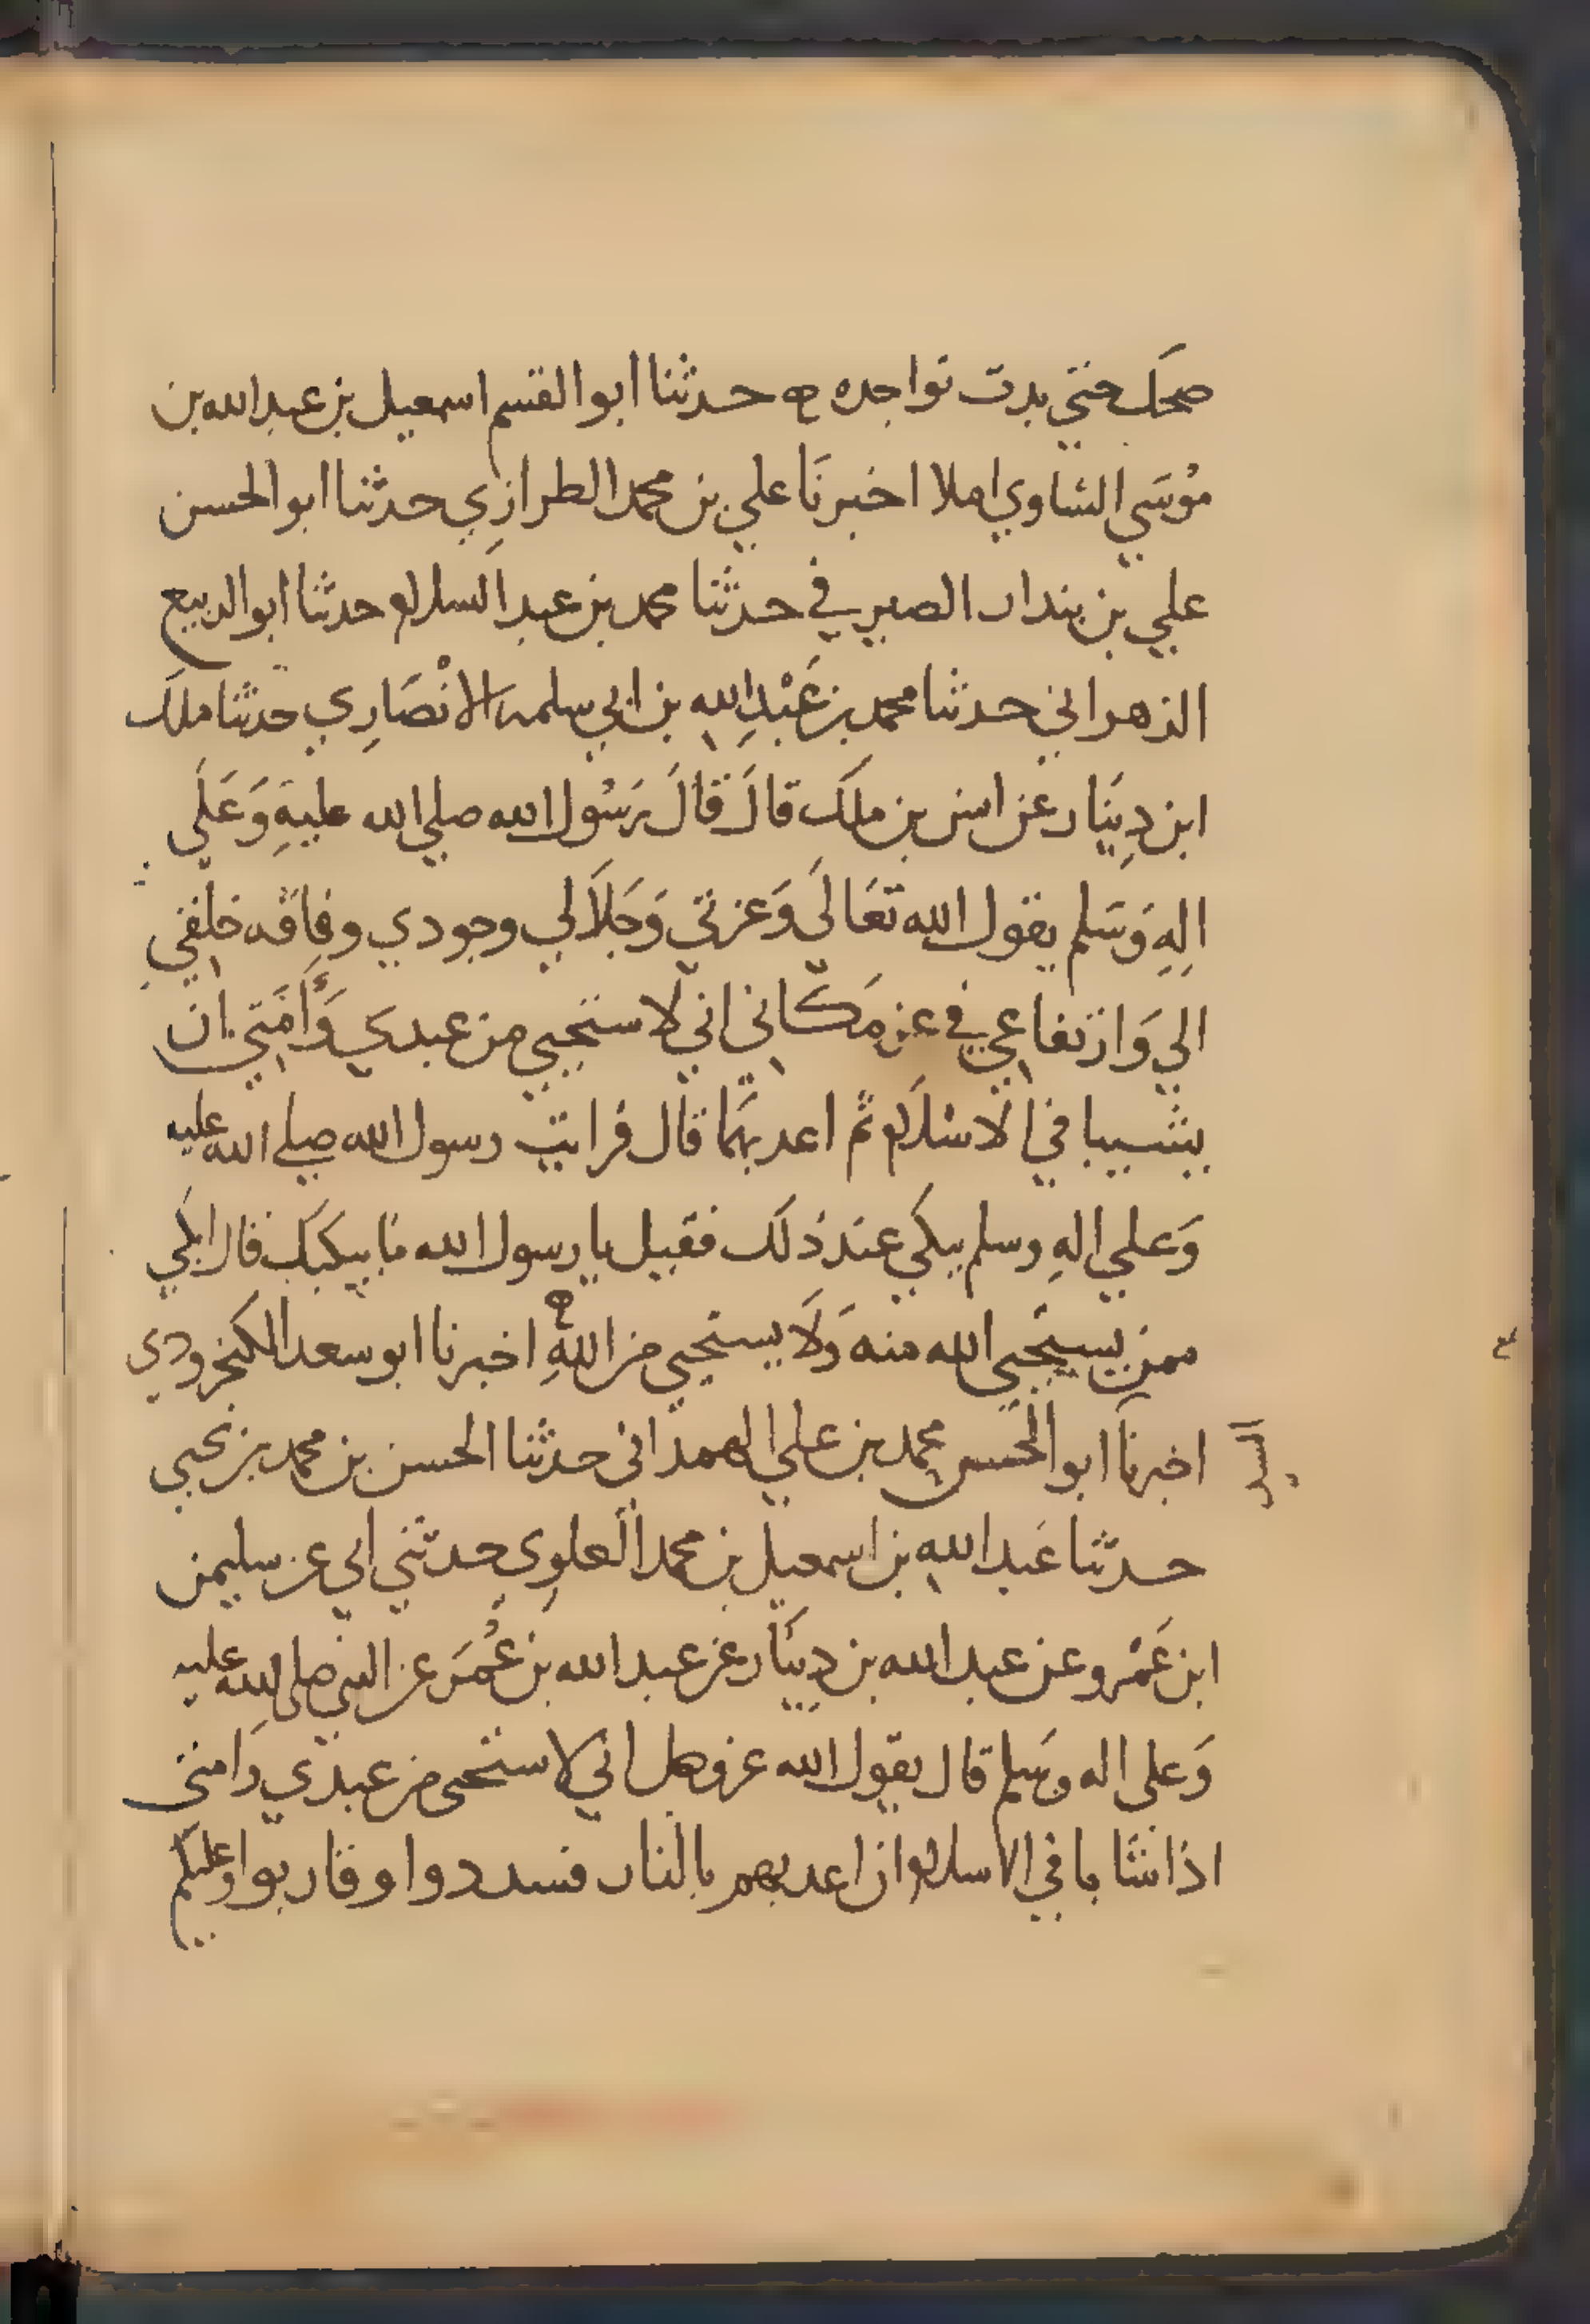 ضحك حتى بدت نواجده ه حدثنا ابو القسم اسمعيل بن عبد الله بن
مُوسَي الشاوي املا اخبرنَا علي بن محمد الطرازِي حدثنا ابو الحسن
علي بن بندار الصيرفي حدثنا محمد بن عبد السلام حدثنا ابو الربيع
الزهراني حدثنا محمد بن عَبْدِ اللهِ بن ابي سلمه الانْصَارِي حدثنا ملك
ابن دِينَار عن انس بن ملك قالَ قالَ رَسُول الله صلي الله عليهِ وَعَلَي
الِهِ وَسَلم يقول الله تعَالَي وَعزتي وَجَلَالي وجودي وفاقه خلقي
الي وَارتفاعي في عز مَكَاني اني لاستحيي من عبدي وَأمَتي ان
يشيبا في الاسْلَام ثم اعدبهَما قال فرايت رسول الله صلي الله عليه
وَعلي الهِ وسلم يبكي عند ذلك فقيل يا رسول الله ما يبكيك قال ابكي
ممن يستحيي الله منه وَلَا يستحيي من اللهِ ه اخبرنا ابو سعد الكنجرودي
اخبرنَا ابو الحسن محمد بن علي الهمذاني حدثنا الحسن بن محمد بن يحيي
السيد
حدثنا عَبد اللهِ بن اسمعيل بن محمد العلوِي حدثني ابي عن سليمن
ابن عَمْرو عن عبد الله بن دِينَار عن عبد الله بن عُمَر عن النبي صلى الله عليه
وَعلى اله وسَلم قال يقول الله عز وجل اني لاستحيى من عبدي وَامتى
اذا شابا في الاسلام ان اعدبهم بالنار فسددوا وقاربوا وعليكم